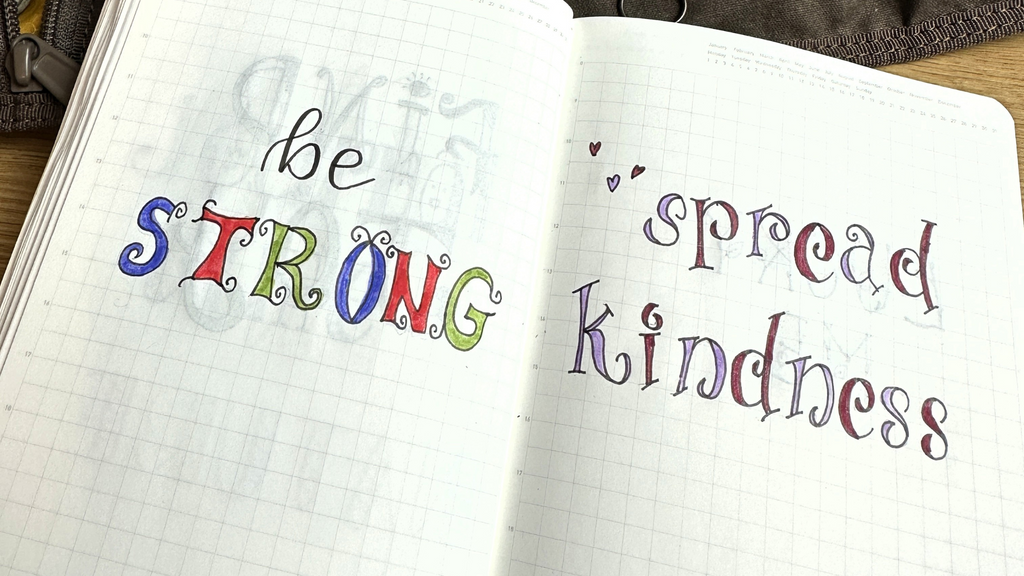 be
STRONG
spread
kindness